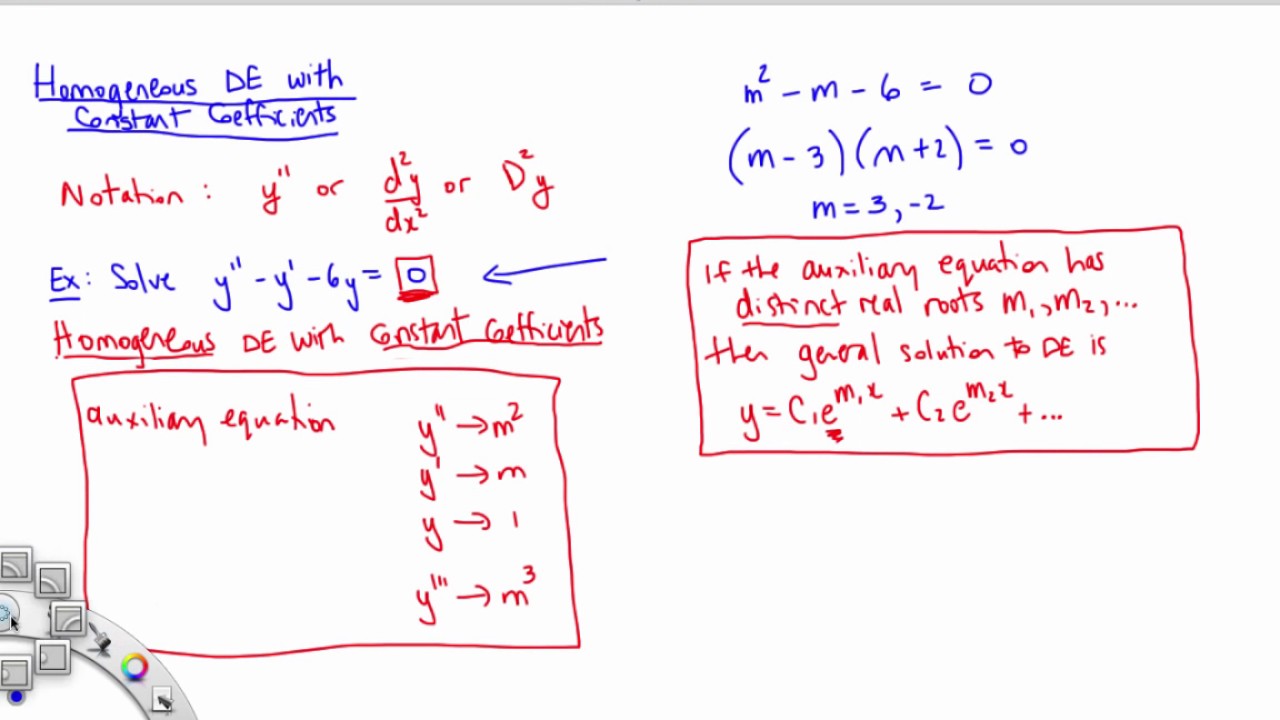 Homogeneous DE with
Constant Coefficients
Notation : y'' or d²y/dx² or D²y
Ex: Solve y'' - y' - 6y = 0
Homogeneous DE with Constant Coefficients
auxiliary equation
y'' → m²
y' → m
y → 1
y''' → m³
m² - m - 6 = 0
(m - 3)(m + 2) = 0
m = 3, -2
If the auxiliary equation has
distinct real roots m₁, m₂, ...
then general solution to DE is
y = C₁e^{m₁x} + C₂e^{m₂x} + ...